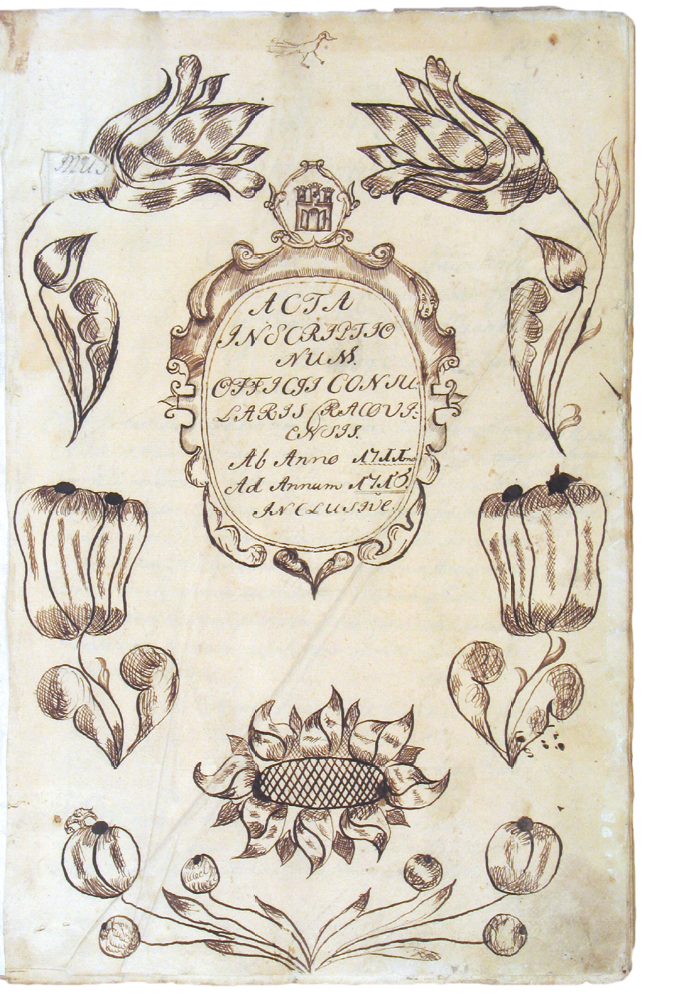 mus
ACTA
INSCRIPTIO
NUM.
OFFICII CONSU-
LARIS CRACOVI-
ENSIS.
Ab Anno 1711mo
Ad Annum 1716
INCLUSIVE.